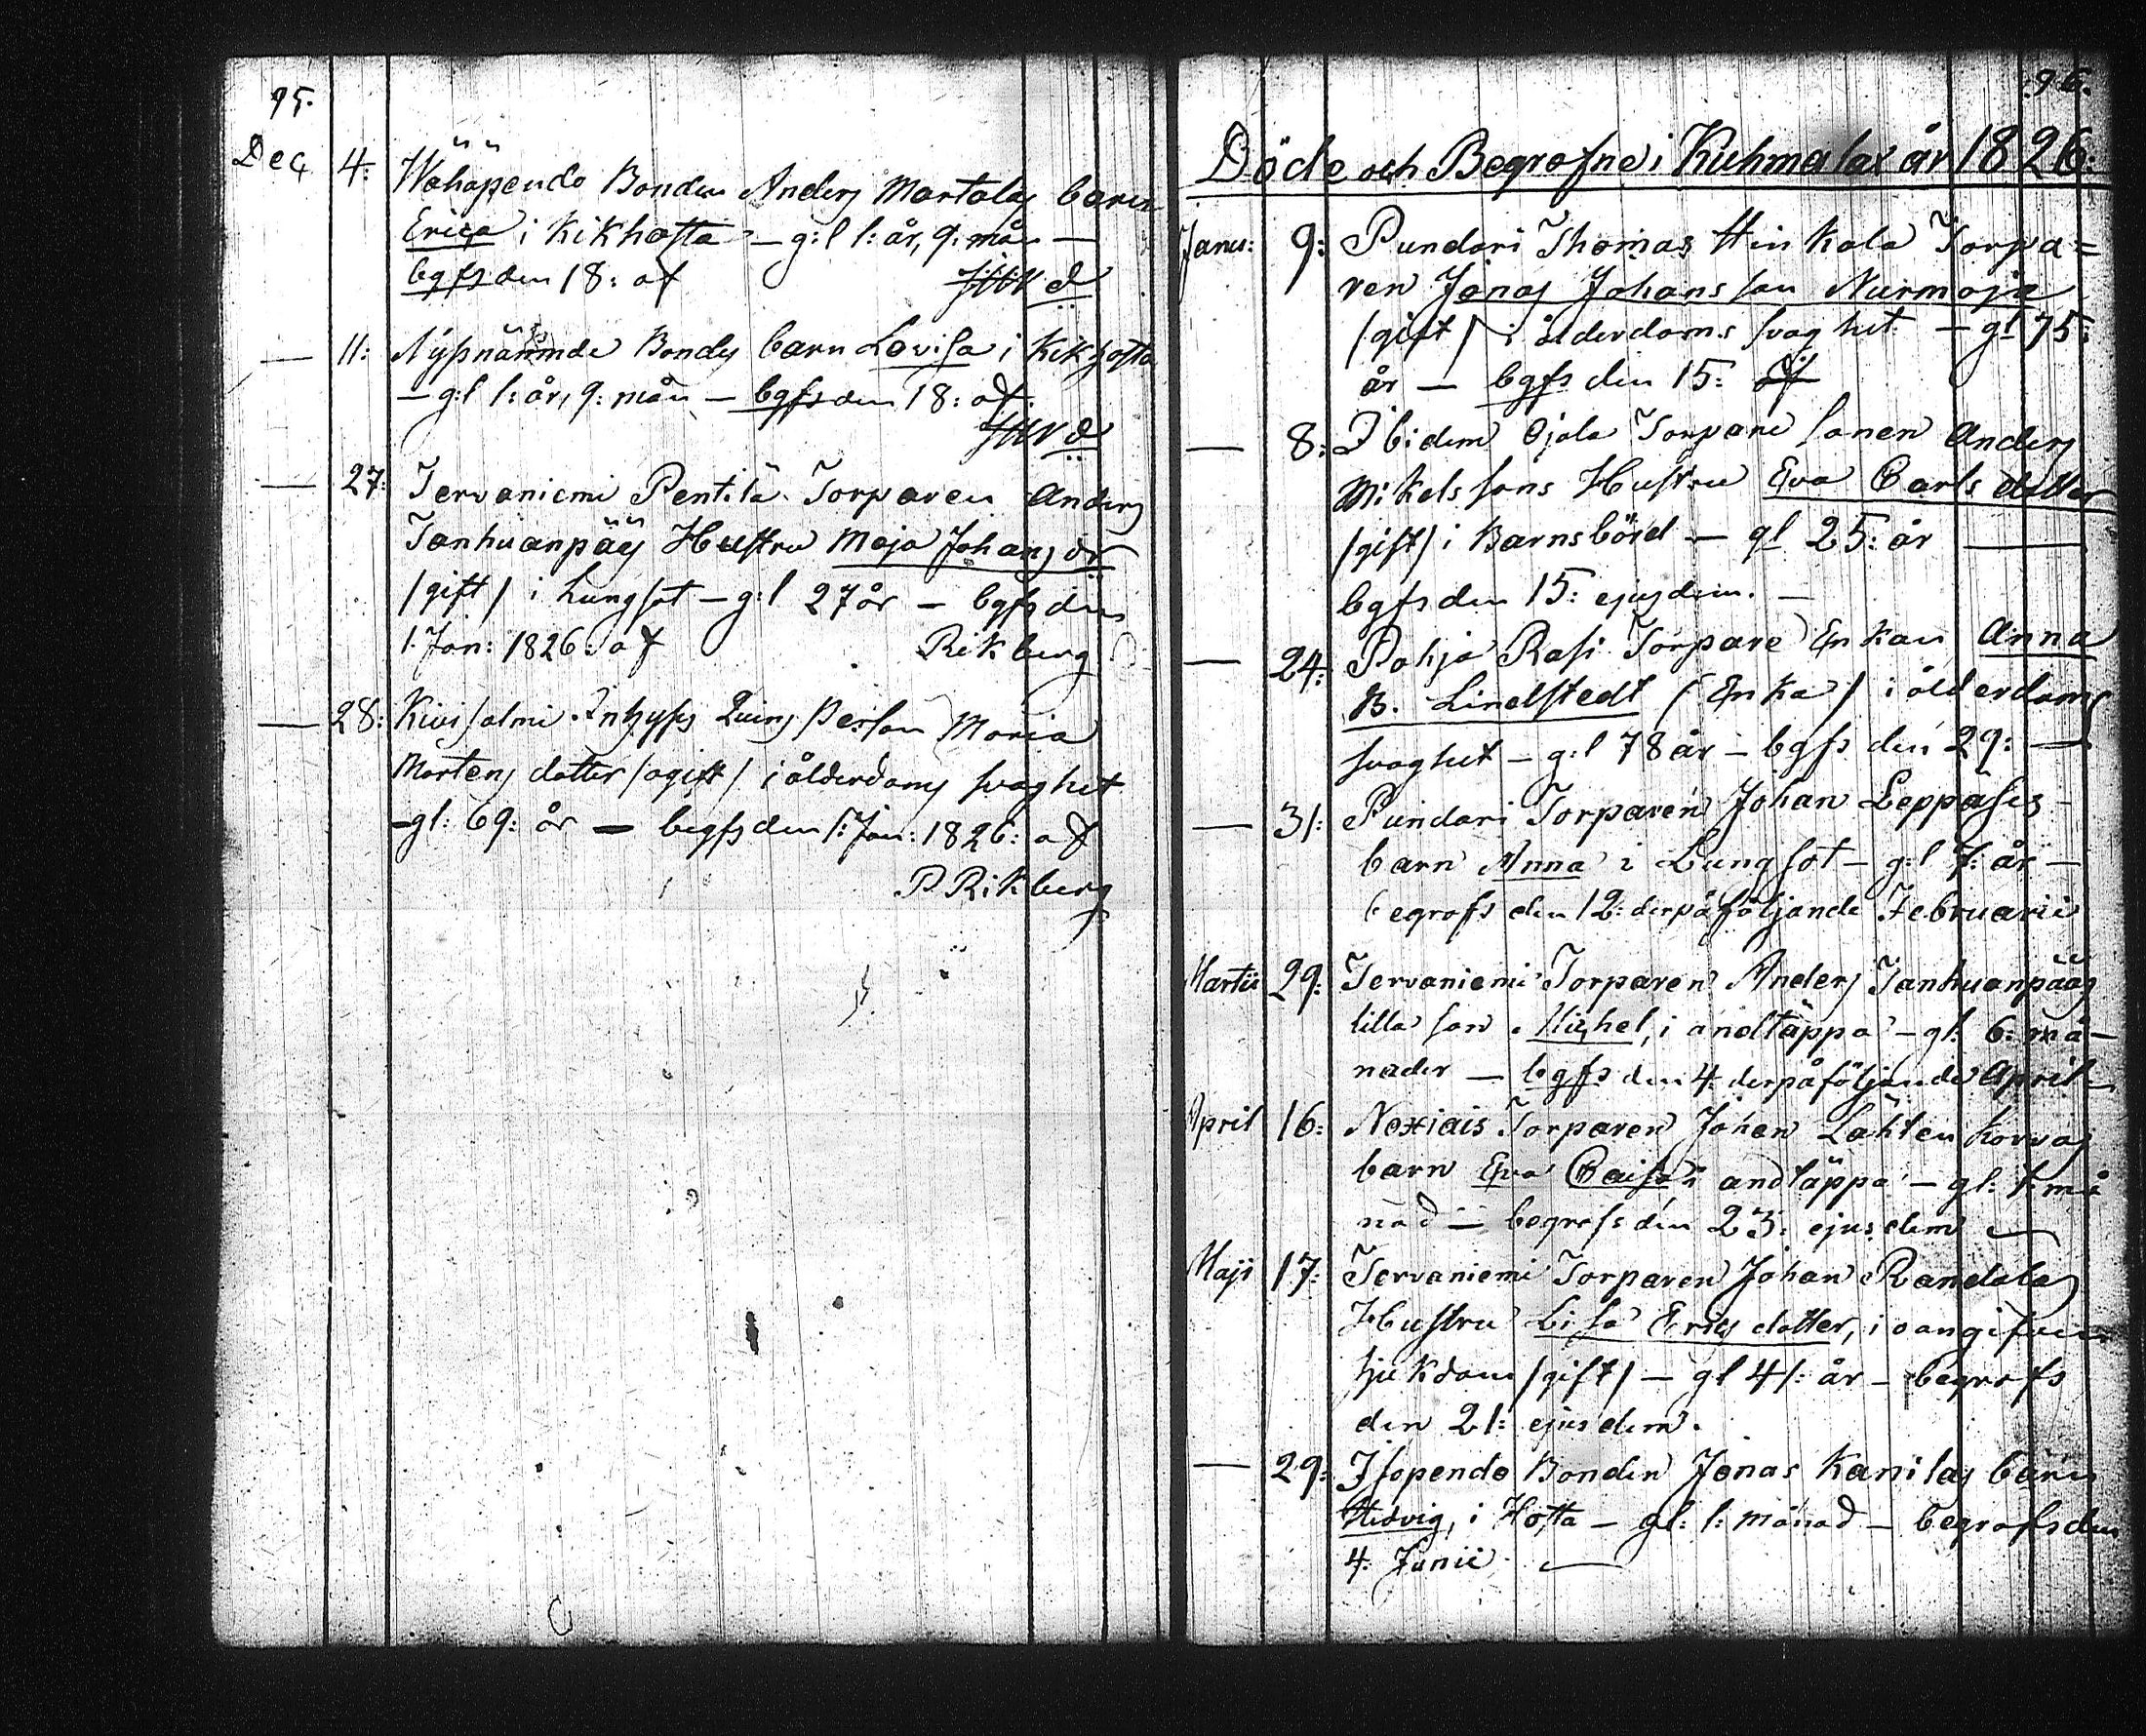 95.
Dec 4: Wähäpendo Bonden Anders Martolas barn
Erica i Kikhosta – g:l 1: år, 9: mån –
bgfs den 18: af
– 11: Nysnämnde Bondes barn Lovisa i Kikhosta
– g:l 1: år, 9: mån – bgfs den 18: af
– 27: Tervaniemi Pentilä Torparen Anders
Tanhuanpääs Hustru Maja Johans dr
/gift/ i Lungsot – g:l 27 år – bgfs den
1. Jan: 1826: af Rikberg
– 28: Kivisalmi Inhyses Quins Person Maria
Mortens dotter /ogift/ i ålderdoms svaghet
– gl: 69: år – begfs den 1: Jan: 1826: af
P Rikberg
96.
Döde och Begrafne i Kuhmalax år 1826:
Janu: 9: Pundari Thomas Hinkala Torpa=
ren Jonas Johansson Nurmoja
/gift/ i ålderdoms svaghet – gl 75:
år – bgfs den 15: af
– 8: Ibidem Ojala Torpare sonen Anders
Mikelssons Hustru Eva Carls dotter
/gift/ i Barnsbörd – gl 25: år –
bgfs den 15: ejusdem. –
– 24: Pohja Rasi Torpare Enkan Anna
B. Lindstedt /Enka/ i ålderdoms
svaghet – g:l 78 år – bgfs den 29: –
– 31: Pundari Torparen Johan Leppäses
barn Anna i Lungsot – g:l 7: år –
begrofs den 12: derpåföljande Februarii
Martii 29: Tervaniemi Torparen Anders Tanhuanpääs
lilla son Michel, i andtäppa – gl: 6: må-
nader – bgfs den 4: derpåföljande April
April 16: Noxiais Torparen Johan Lähten Korvas
barn Eva Caisa i andtäppa – gl: 1: må
nad – begrofs den 23: ejusdem –
Maji 17: Tervaniemi Torparen Johan Randalas
Hustru Lisa Erics dotter, i oangifven
sjukdom /gift/ – gl 41: år – begrofs
den 21: ejusdem.
– 29: Isopendo Bonden Jonas Kanilas barn
Hedvig, i Hosta – gl: 1: månad – begrofs den
4: Junii –